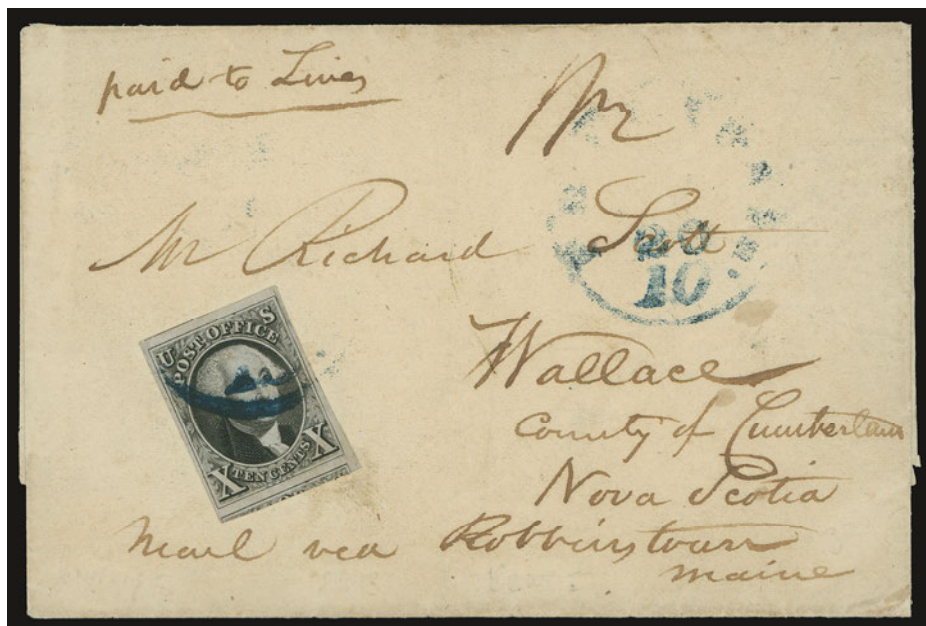 paid to Lines
Mr
Mr Richard Scott
10
Wallace
County of Cumberland
Nova Scotia
Mail via Robbinstown
maine
U S
POST OFFICE
X TEN CENTS X